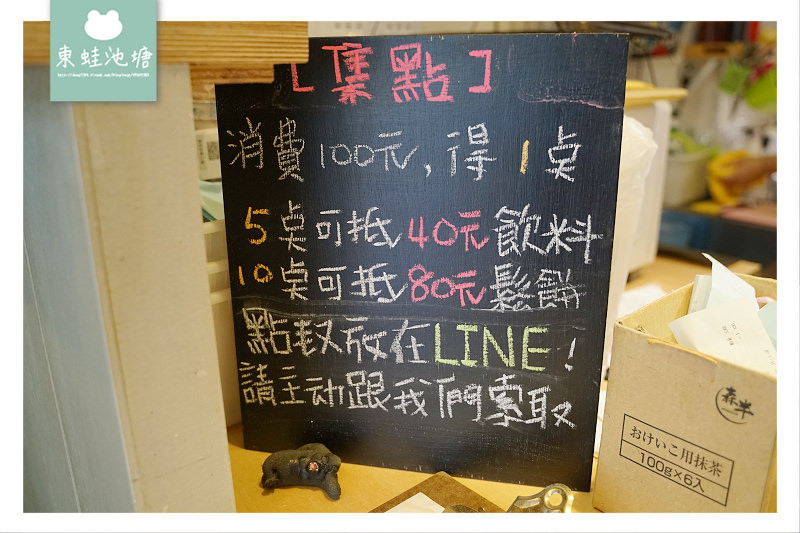 東蛙池塘
[集點]
消費100元,得 1桌
5桌可抵40元飲料
10桌可抵80元鬆餅
點数放在LINE!
請主动跟我們索取
森半
おけいこ用抹茶
100g×6入